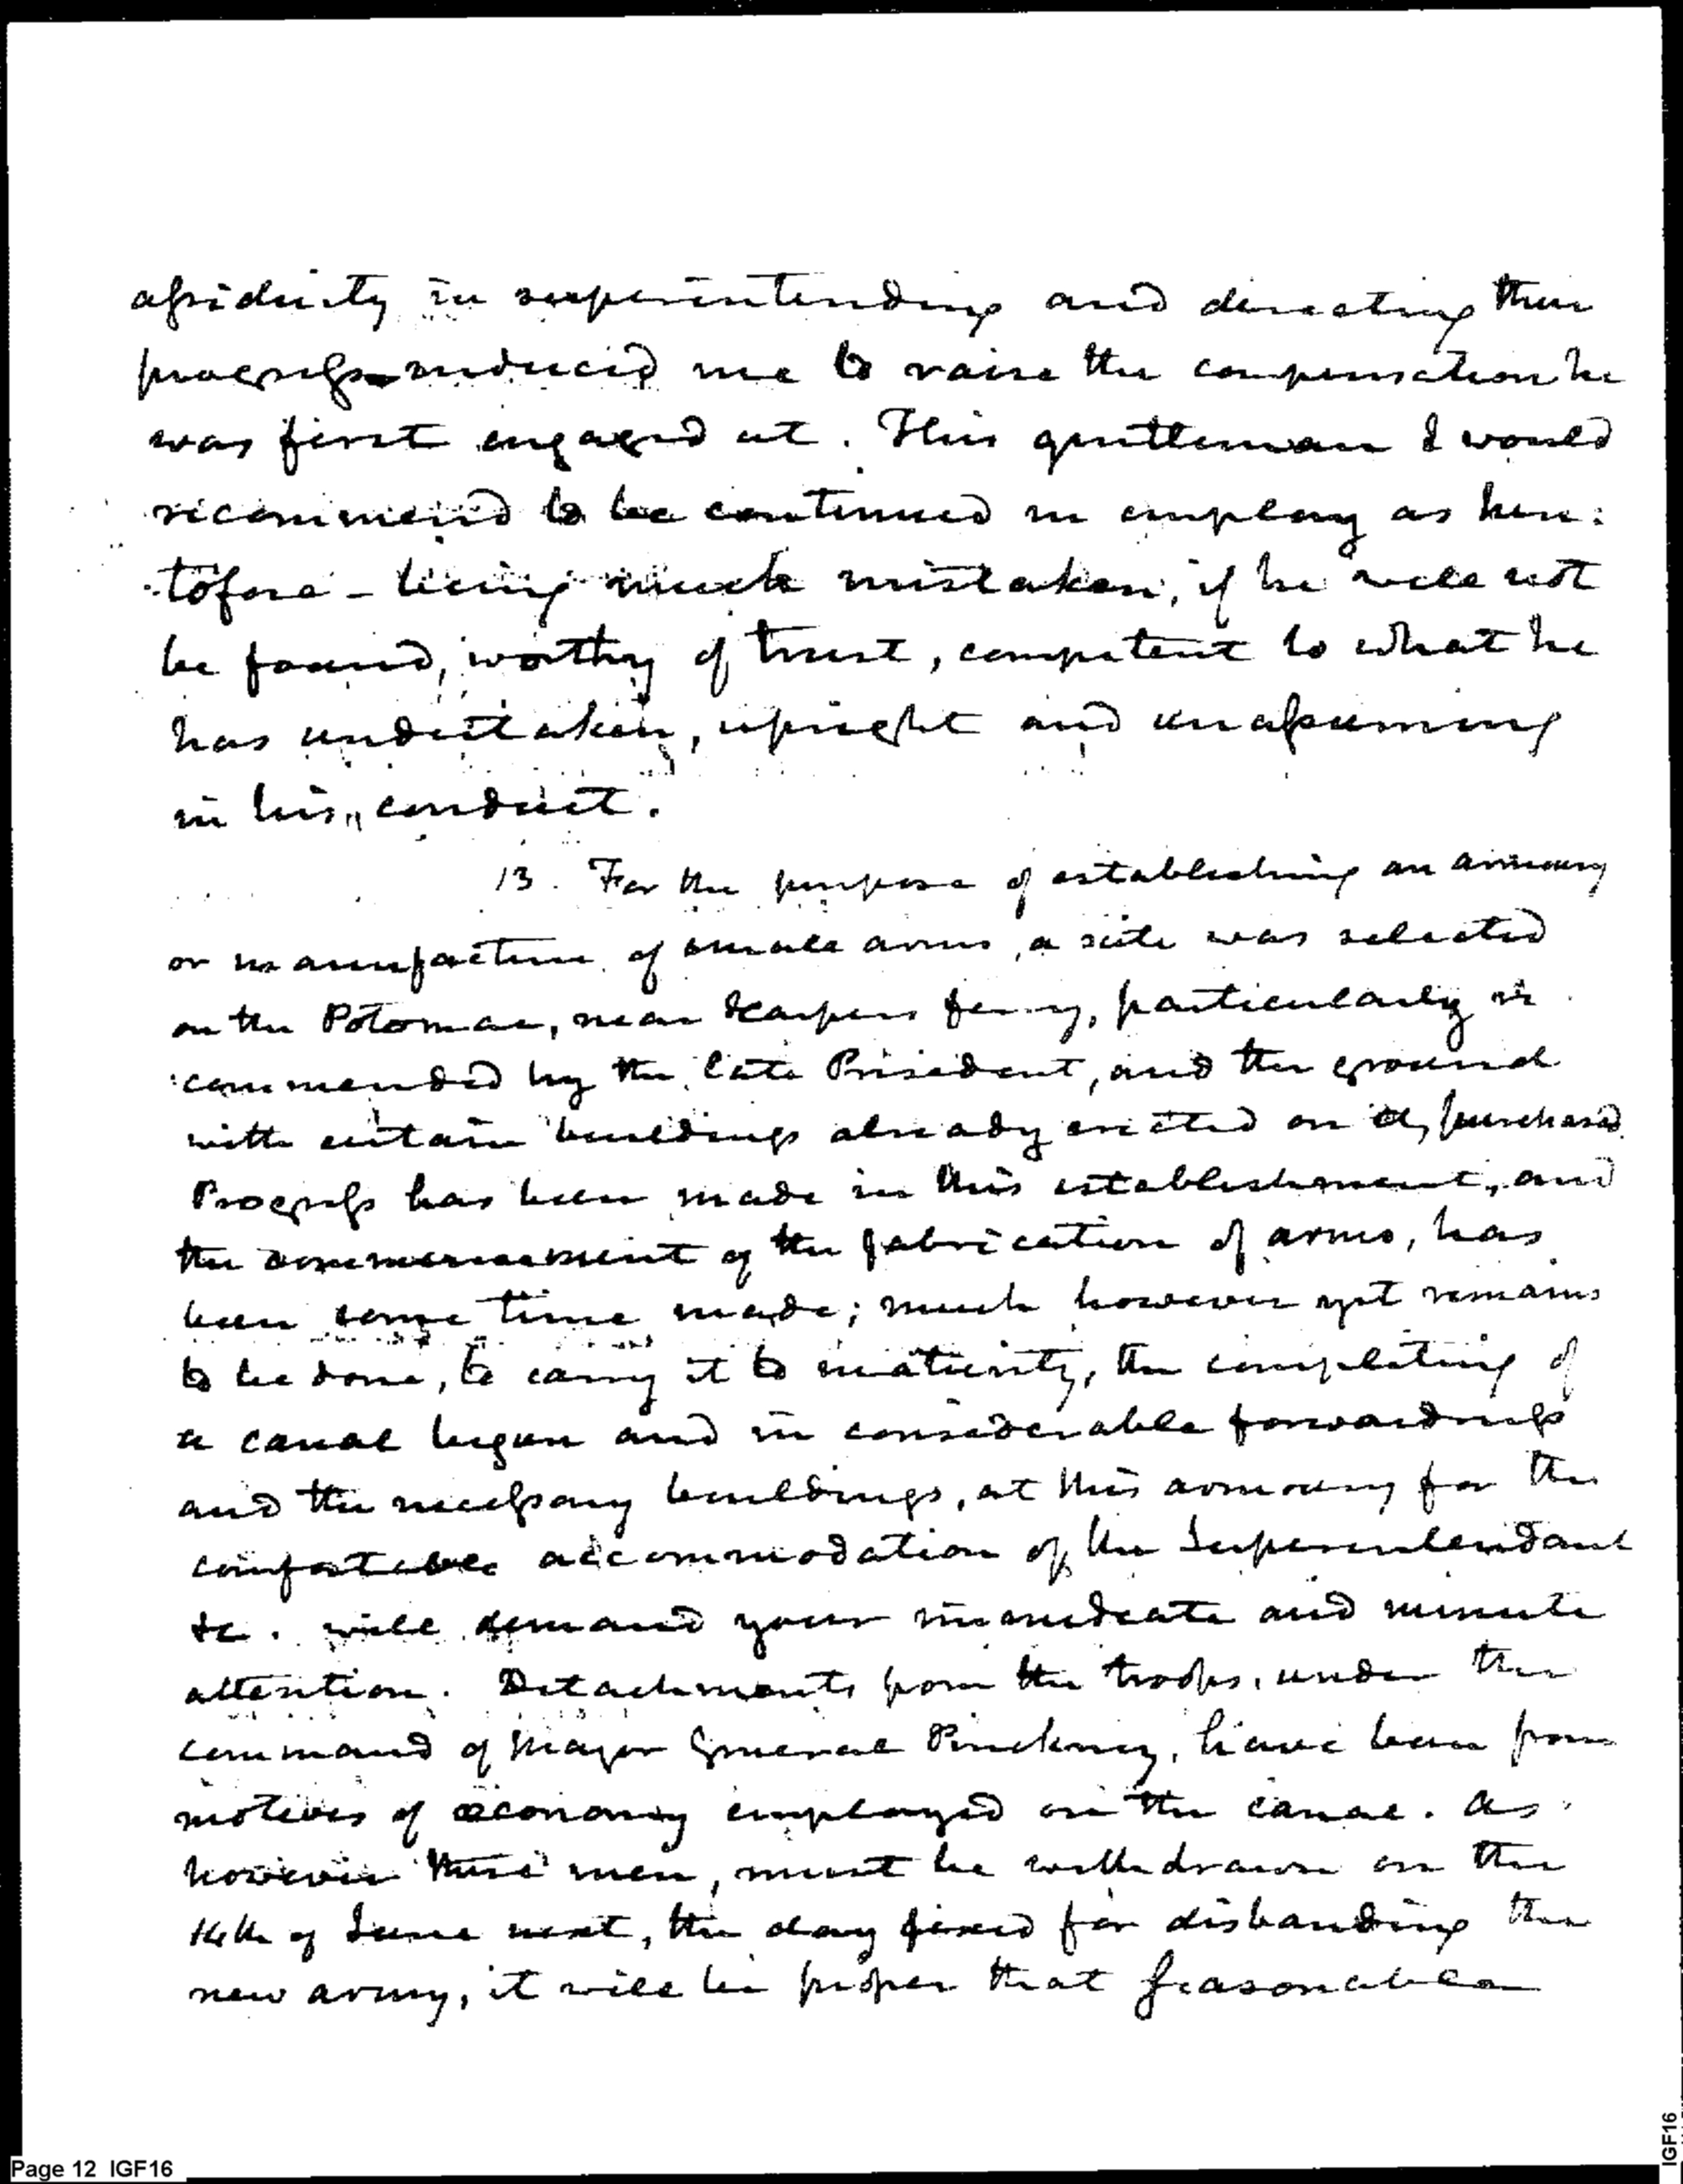 assiduity in superintending and directing their
progress induced me to raise the compensation he
was first engaged at. This gentleman I would
recommend to be continued in employ as here:
:tofore - being much mistaken, if he will not
be found, worthy of trust, competent to what he
has undertaken, upright and unassuming
in his conduct.
13. For the purpose of establishing an armoury
or manufacture of small arms, a scite was selected
on the Potomac, near Harpers ferry, particularly re
:commended by the late President, and the ground
with certain buildings already erected on it, purchased.
Progress has been made in this establishment, and
the commencement of the fabrication of arms, has
been some time made; much however yet remains
to be done, to carry it to maturity, the completing of
a canal begun and in considerable forwardness
and the necessary buildings, at this armoury for the
comfortable accommodation of the Superintendant
&c. will demand your immediate and minute
attention. Detachments from the troops, under the
command of Major General Pinckney, have been from
motives of oeconomy employed on the canal. As
however these men, must be withdrawn on the
14th of June next, the day fixed for disbanding the
new army, it will be proper that seasonable
Page 12 IGF16
IGF16